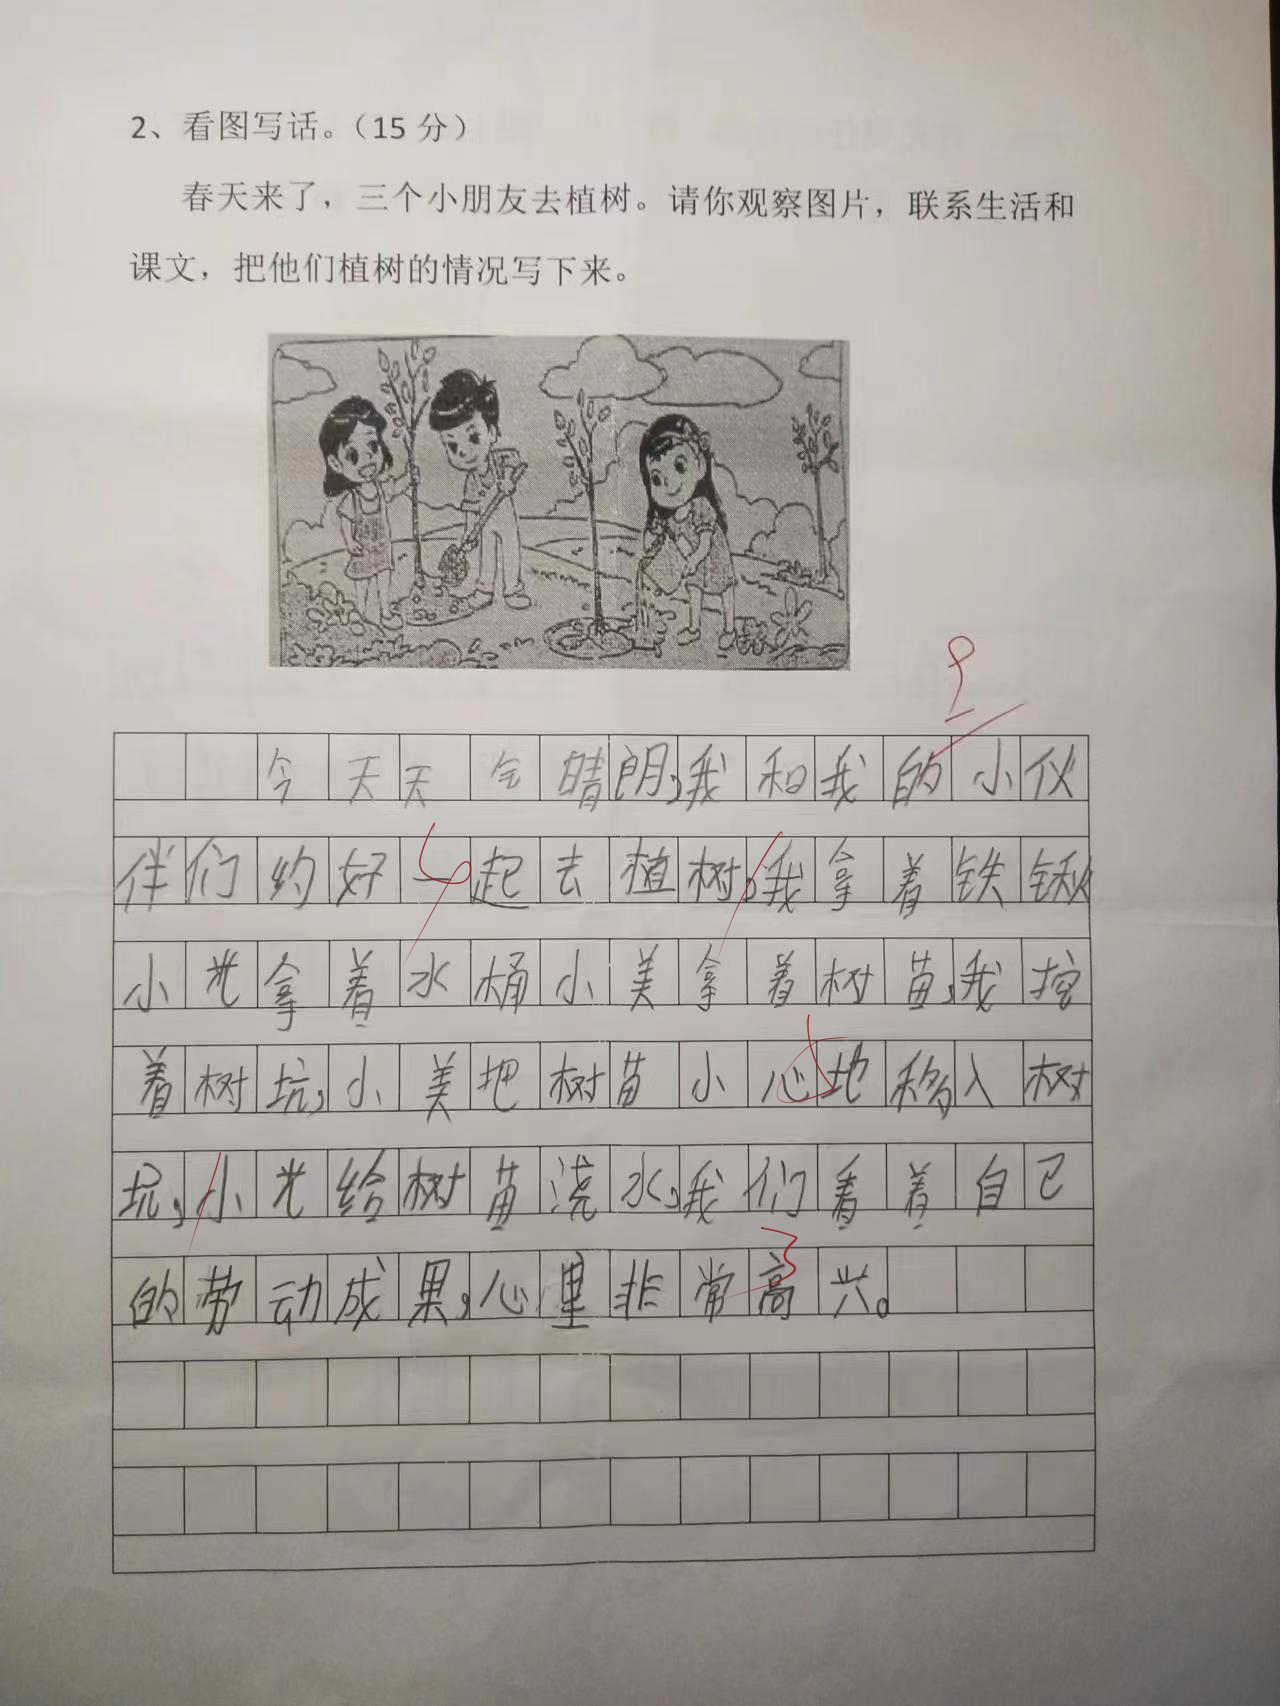 2、看图写话。（15分）
春天来了，三个小朋友去植树。请你观察图片，联系生活和
课文，把他们植树的情况写下来。
今天天气晴朗,我和我的小伙
伴们约好一起去植树,我拿着铁锹
小光拿着水桶小美拿着树苗,我挖
着树坑,小美把树苗小心地移入树
坑,小光给树苗浇水,我们看着自己
的劳动成果,心里非常高兴。